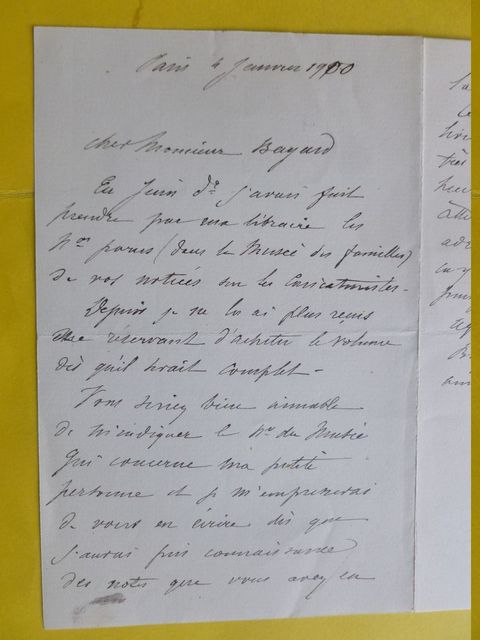 Paris 4 Janvier 1900
cher Monsieur Bayard
En Juin dr j'avais fait
prendre par ma libraire les
Nos parus (dans le Musée des familles)
de vos notices sur les Caricaturistes -
Depuis je ne les ai plus reçus
me réservant d'acheter le volume
dès qu'il serait complet -
Vous seriez bien aimable
de m'indiquer le No du Musée
qui concerne ma petite
personne et je m'empresserai
de vous en écrire dès que
j'aurai pris connaissance
des notes que vous avez eu